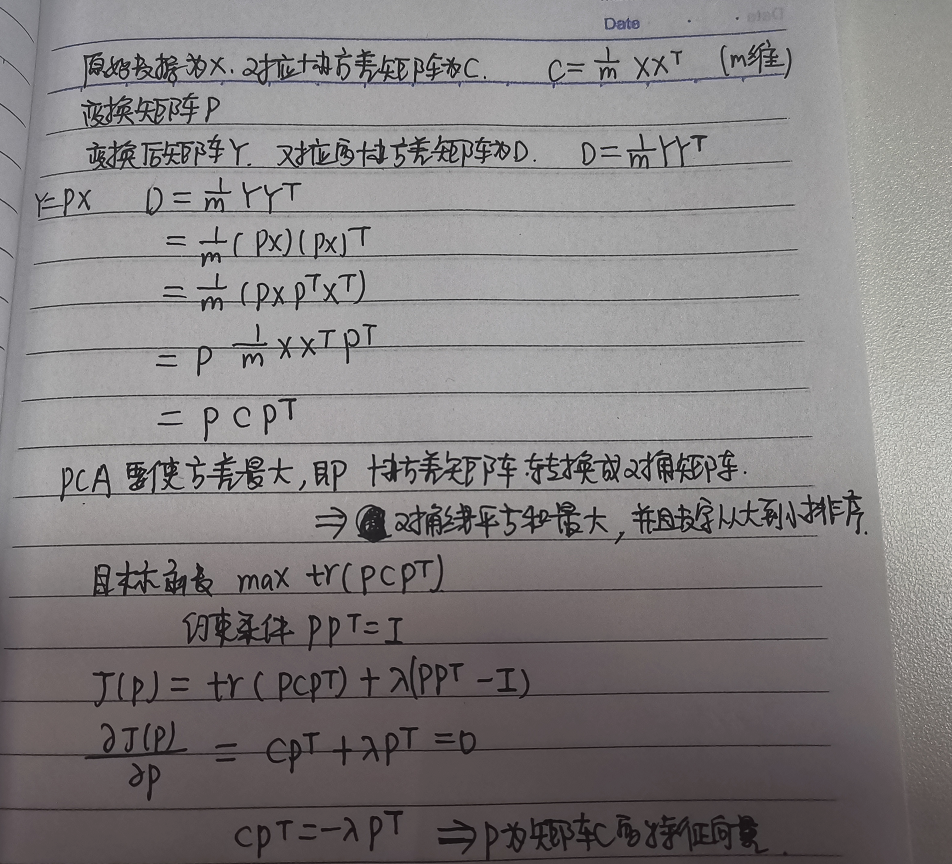 Date
原始数据为X. 对应协方差矩阵为C. C = 1/m XXᵀ (m维)
变换矩阵P
变换后矩阵Y. 对应的协方差矩阵为D. D = 1/m YYᵀ
Y=PX D = 1/m YYᵀ
= 1/m (PX)(PX)ᵀ
= 1/m (PXPᵀXᵀ)
= P 1/m XXᵀPᵀ
= PCPᵀ
PCA 要使方差最大,即P 协方差矩阵转换成对角矩阵.
⇒ 对角线平方和最大,并且数字从大到小排序.
目标函数 max tr(PCPᵀ)
约束条件 PPᵀ=I
J(P) = tr(PCPᵀ)+λ(PPᵀ-I)
∂J(P)/∂P = CPᵀ+λPᵀ=0
CPᵀ=-λPᵀ ⇒ P为矩阵C的特征向量.